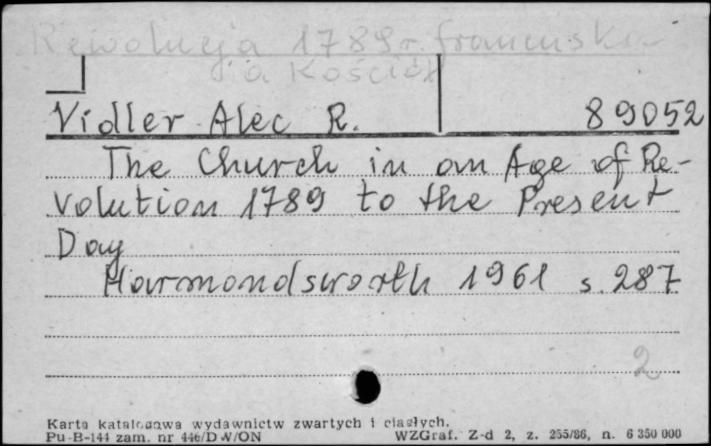 Rewolucja 1789 r. francuska
a Kościół
Vidler Alec R. 89052
The Church in an Age of Re-
volution 1789 to the Present
Day
Harmondsworth 1961 s. 287
2
Karta katalogowa wydawnictw zwartych i ciągłych.
Pu-B-144 zam. nr 446/DW/ON WZGraf. Z-d 2, z. 255/86, n. 6 350 000